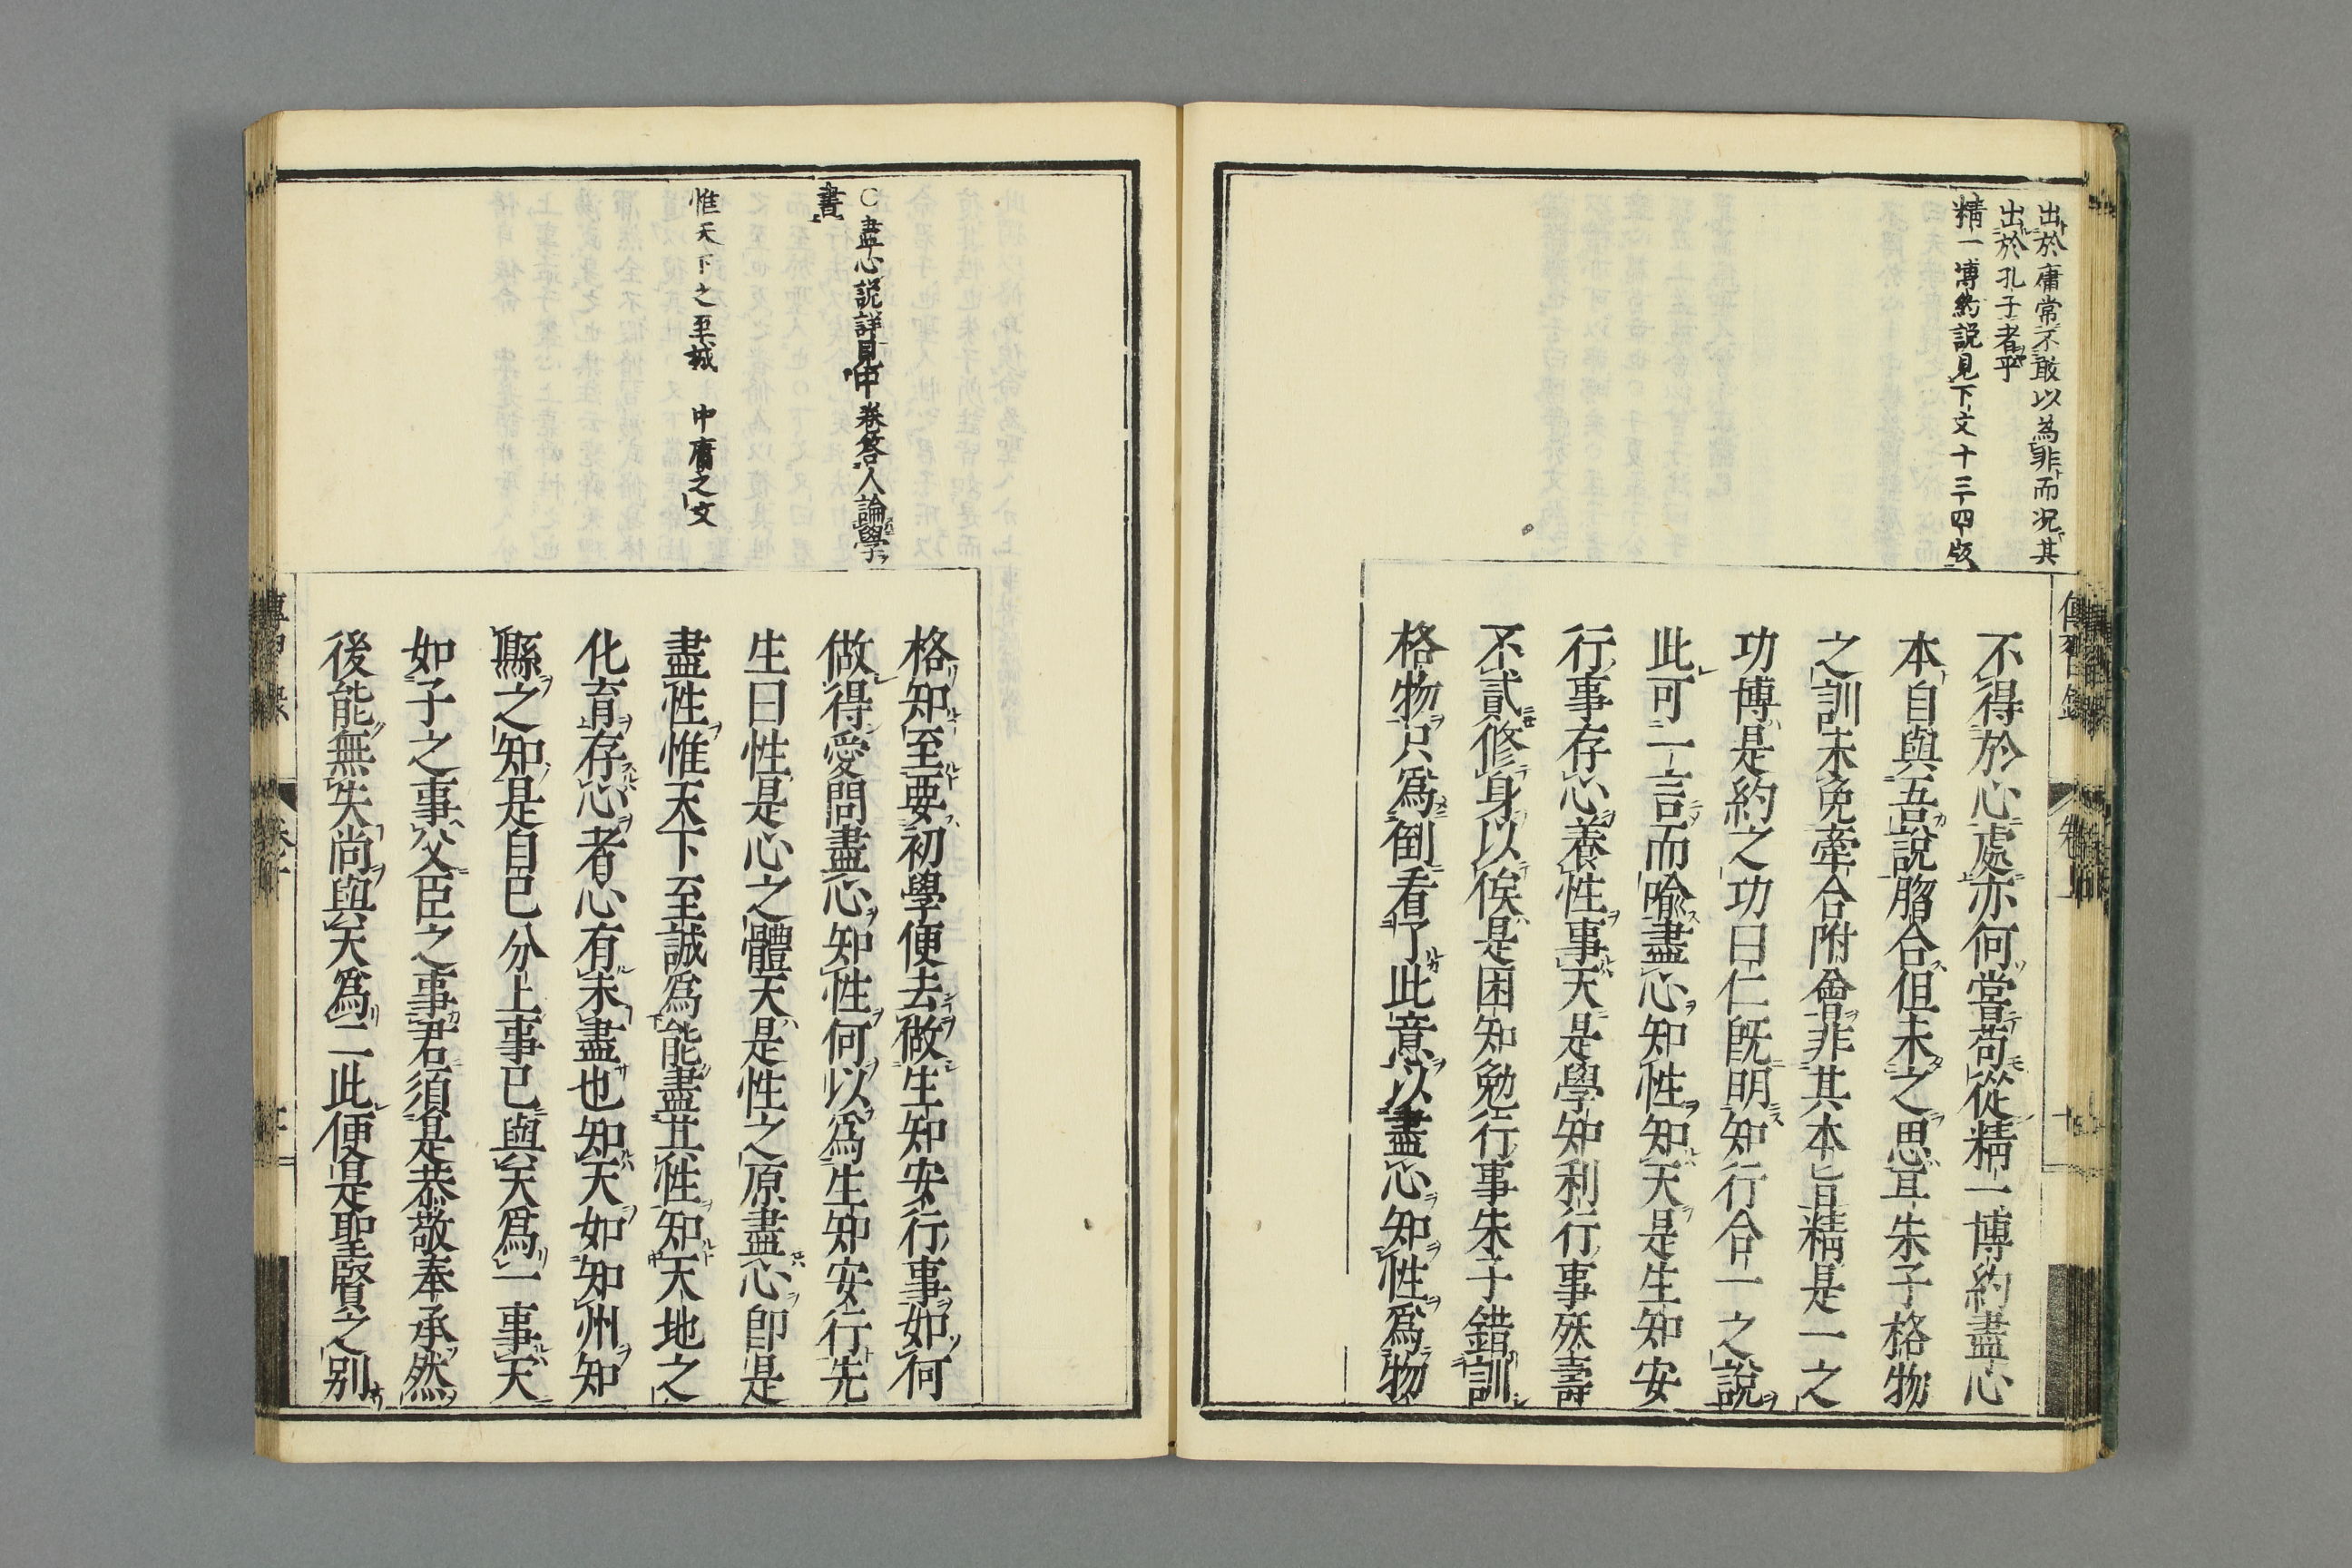 出於庸常不敢以為非而况其
出於孔子者乎
精一博約説見下文十三四版
不得於心處亦何當苟從精一博約盡心
本自與吾說脗合但未之思耳朱子格物
之訓未免牽合附會非其本旨精是一之
功博是約之功曰仁既明知行合一之說
此可一言而喩盡心知性知天是生知安
行事存心養性事天是學知利行事殀壽
不貳修身以俟是困知勉行事朱子錯訓
格物只爲倒看了此意以盡心知性爲物
○盡心説詳見中卷答人論學
書
惟天下之至誠 中庸之文
格知至要初學便去做生知安行事如何
做得愛問盡心知性何以爲生知安行先
生曰性是心之體天是性之原盡心卽是
盡性惟天下至誠爲能盡其性知天地之
化育存心者心有未盡也知天如知州知
縣之知是自己分上事已與天爲一事天
如子之事父臣之事君須是恭敬奉承然
後能無失尚與天爲二此便是聖賢之别